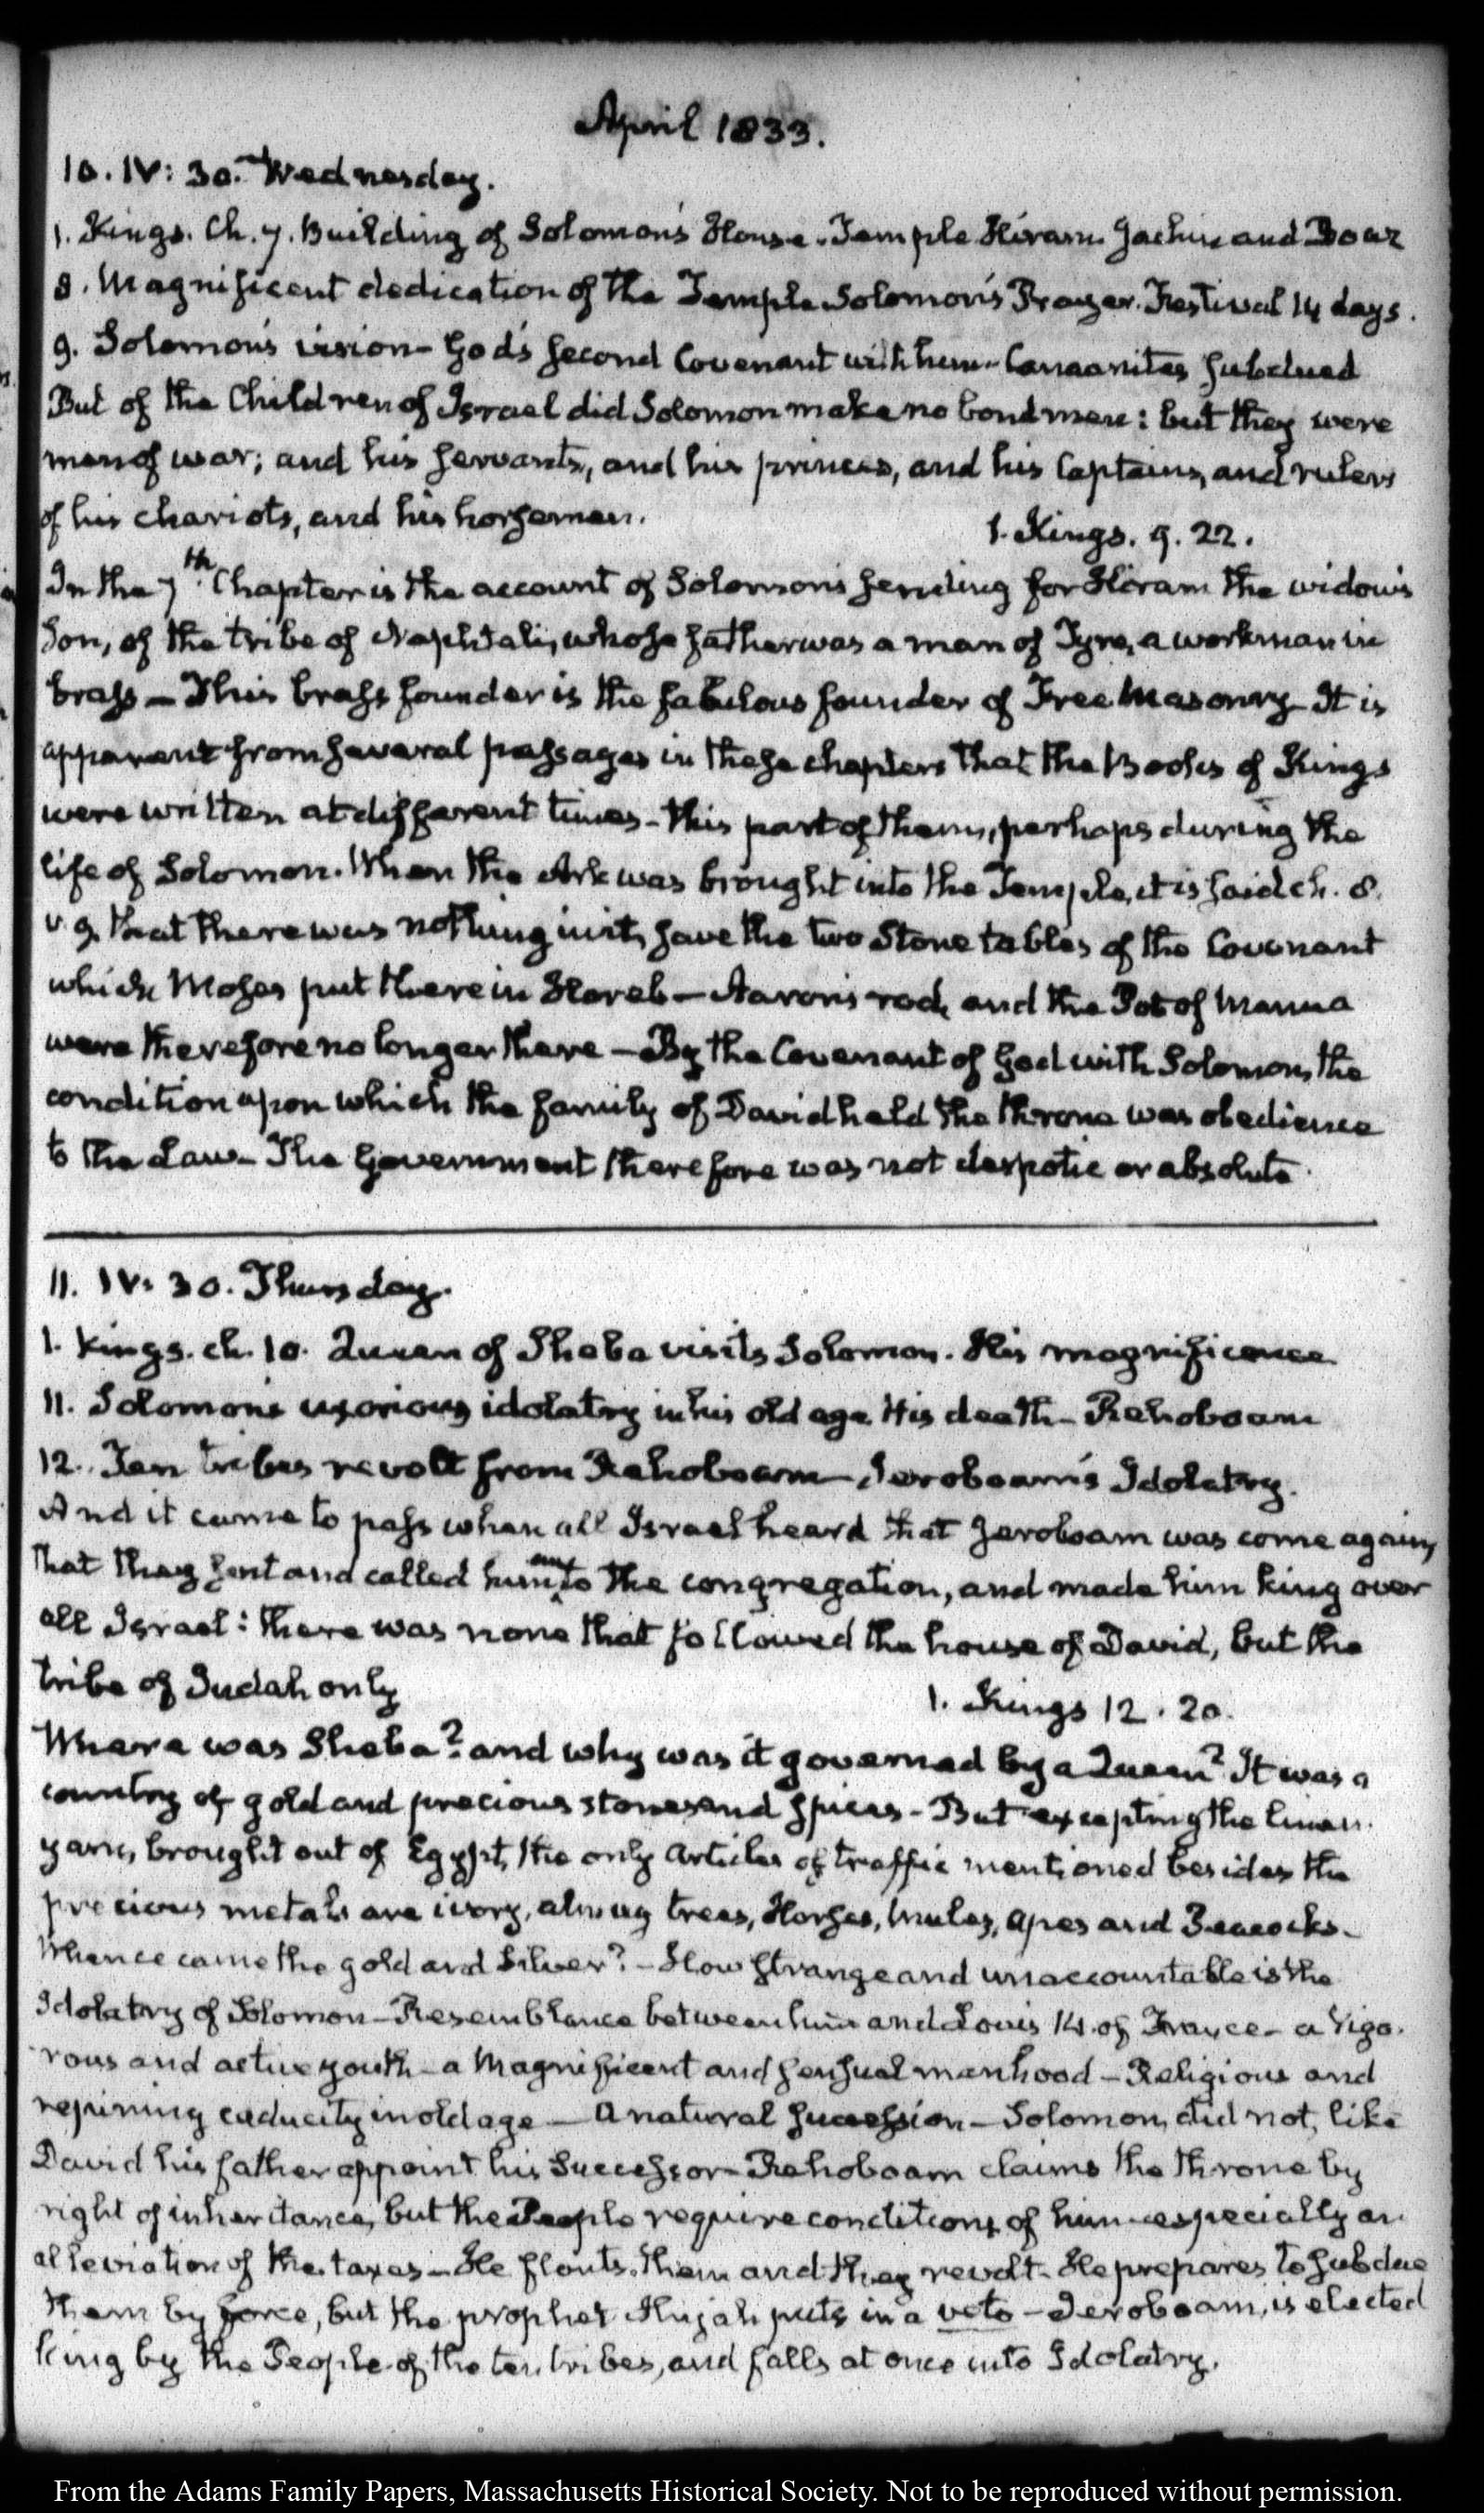 April 1833.
10. IV: 30. Wednesday.
1. Kings. Ch. 7. Building of Solomon's House. Temple Hiram. Jachin and Boaz
8. Magnificent dedication of the Temple Solomon's Prayer. Festival 14 days.
9. Solomon's vision- God's second Covenant with him- Canaanites subdued
But of the Children of Israel did Solomon make no bondmen: but they were
men of war; and his servants, and his princes, and his Captains, and rulers
of his chariots, and his horsemen.
1. Kings. 9. 22.
In the 7th. Chapter is the account of Solomon's sending for Hiram the widow's
Son, of the tribe of Naphtali, whose father was a man of Tyre, a workman in
brass — This brass founder is the fabulous founder of Free Masonry- It is
apparent from several passages in these chapters that the Books of Kings
were written at different times - this part of them, perhaps during the
life of Solomon. When the Ark was brought into the Temple, it is said ch. 8.
v. 9. that there was nothing in it, save the two Stone tables of the Covenant
which Moses put there in Horeb — Aaron's rod, and the Pot of Manna
were therefore no longer there — By the Covenant of God with Solomon, the
condition upon which the family of David held the throne was obedience
to the Law- The Government therefore was not despotic or absolute.
11. IV. 30. Thursday.
1. Kings. ch. 10. Queen of Sheba visits Solomon. His magnificence
11. Solomon's uxorious idolatry in his old age His death- Rehoboam
12. Ten tribes revolt from Rehoboam- Jeroboam's Idolatry.
And it came to pass when all Israel heard that Jeroboam was come again,
that they sent and called him unto the congregation, and made him king over
all Israel: there was none that followed the house of David, but the
tribe of Judah only
1. Kings 12. 20.
Where was Sheba? and why was it governed by a Queen? It was a
country of gold and precious stones and spices - But excepting the linen
yarn, brought out of Egypt, the only articles of traffic mentioned besides the
precious metals are ivory, almug trees, Horses, Mules, apes and Peacocks-
Whence came the gold and Silver? - How strange and unaccountable is the
Idolatry of Solomon - Resemblance between him and Louis 14. of France- a Vigo-
rous and active youth - a Magnificent and sensual manhood - Religious and
repining caducity in old age — A natural succession - Solomon, did not, like
David his father appoint his Successor- Rehoboam claims the throne by
right of inheritance, but the People require conditions of him especially an
alleviation of the taxes - He flouts them and they revolt- He prepares to subdue
them by force, but the prophet Ahijah puts in a veto - Jeroboam, is elected
king by the People of the ten tribes, and falls at once into Idolatry.
From the Adams Family Papers, Massachusetts Historical Society. Not to be reproduced without permission.